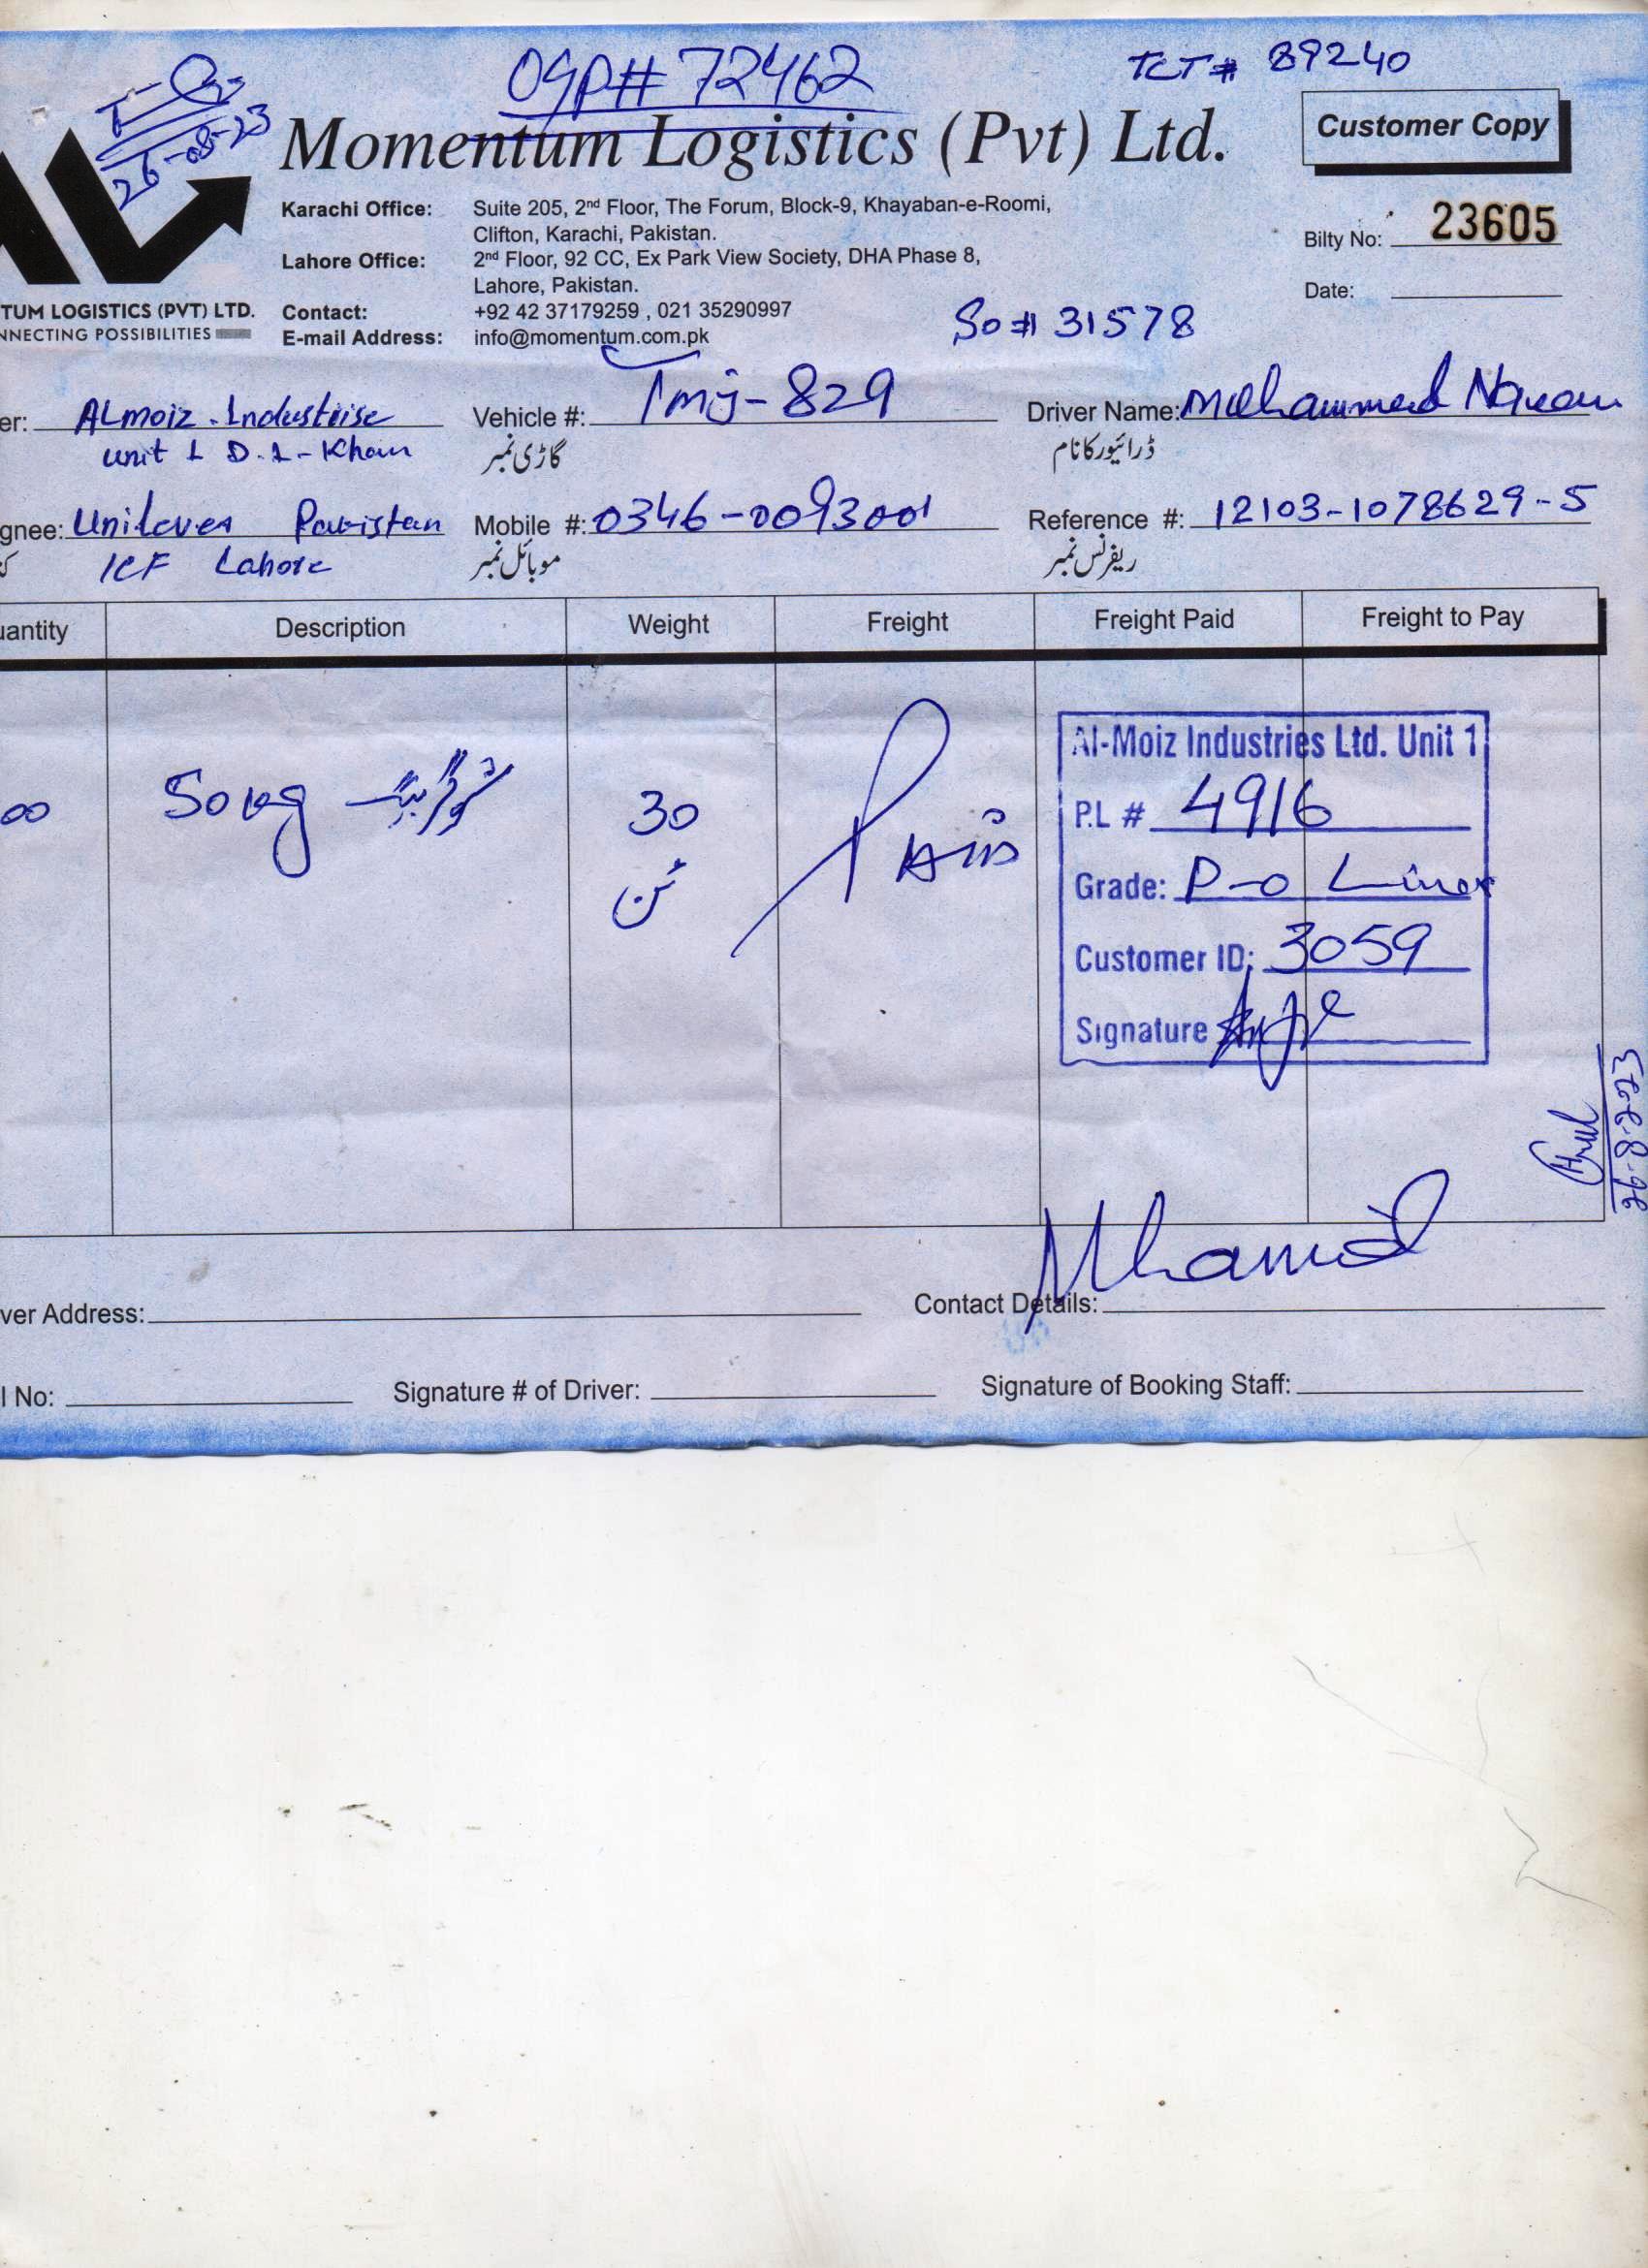 OGP# 72462
TCT # 89240
26-08-23
Momentum Logistics (Pvt) Ltd.
Customer Copy
Karachi Office: Suite 205, 2nd Floor, The Forum, Block-9, Khayaban-e-Roomi,
Clifton, Karachi, Pakistan.
Bilty No: 23605
Lahore Office: 2nd Floor, 92 CC, Ex Park View Society, DHA Phase 8,
Lahore, Pakistan.
Date:
TUM LOGISTICS (PVT) LTD.
NNECTING POSSIBILITIES
Contact: +92 42 37179259 , 021 35290997
E-mail Address: info@momentum.com.pk
So # 31578
er: ALmoiz Industrise
unit 1 D.I-Khan
Vehicle #: Tmj-829
گاڑی نمبر
Driver Name: Mohammad
ڈرائیور کا نام
gnee: Unilever Pakistan
ICF Lahore
Mobile #: 0346-0093001
موبائل نمبر
Reference #: 12103-1078629-5
ریفرنس نمبر
uantity Description Weight Freight Freight Paid Freight to Pay
00 50kg شوگر بیگ 30
ٹن
Paid
Al-Moiz Industries Ltd. Unit 1
P.L # 4916
Grade: P-0 Liner
Customer ID: 3059
Signature
26-8-223
ver Address:
Contact Details:
l No:
Signature # of Driver:
Signature of Booking Staff: